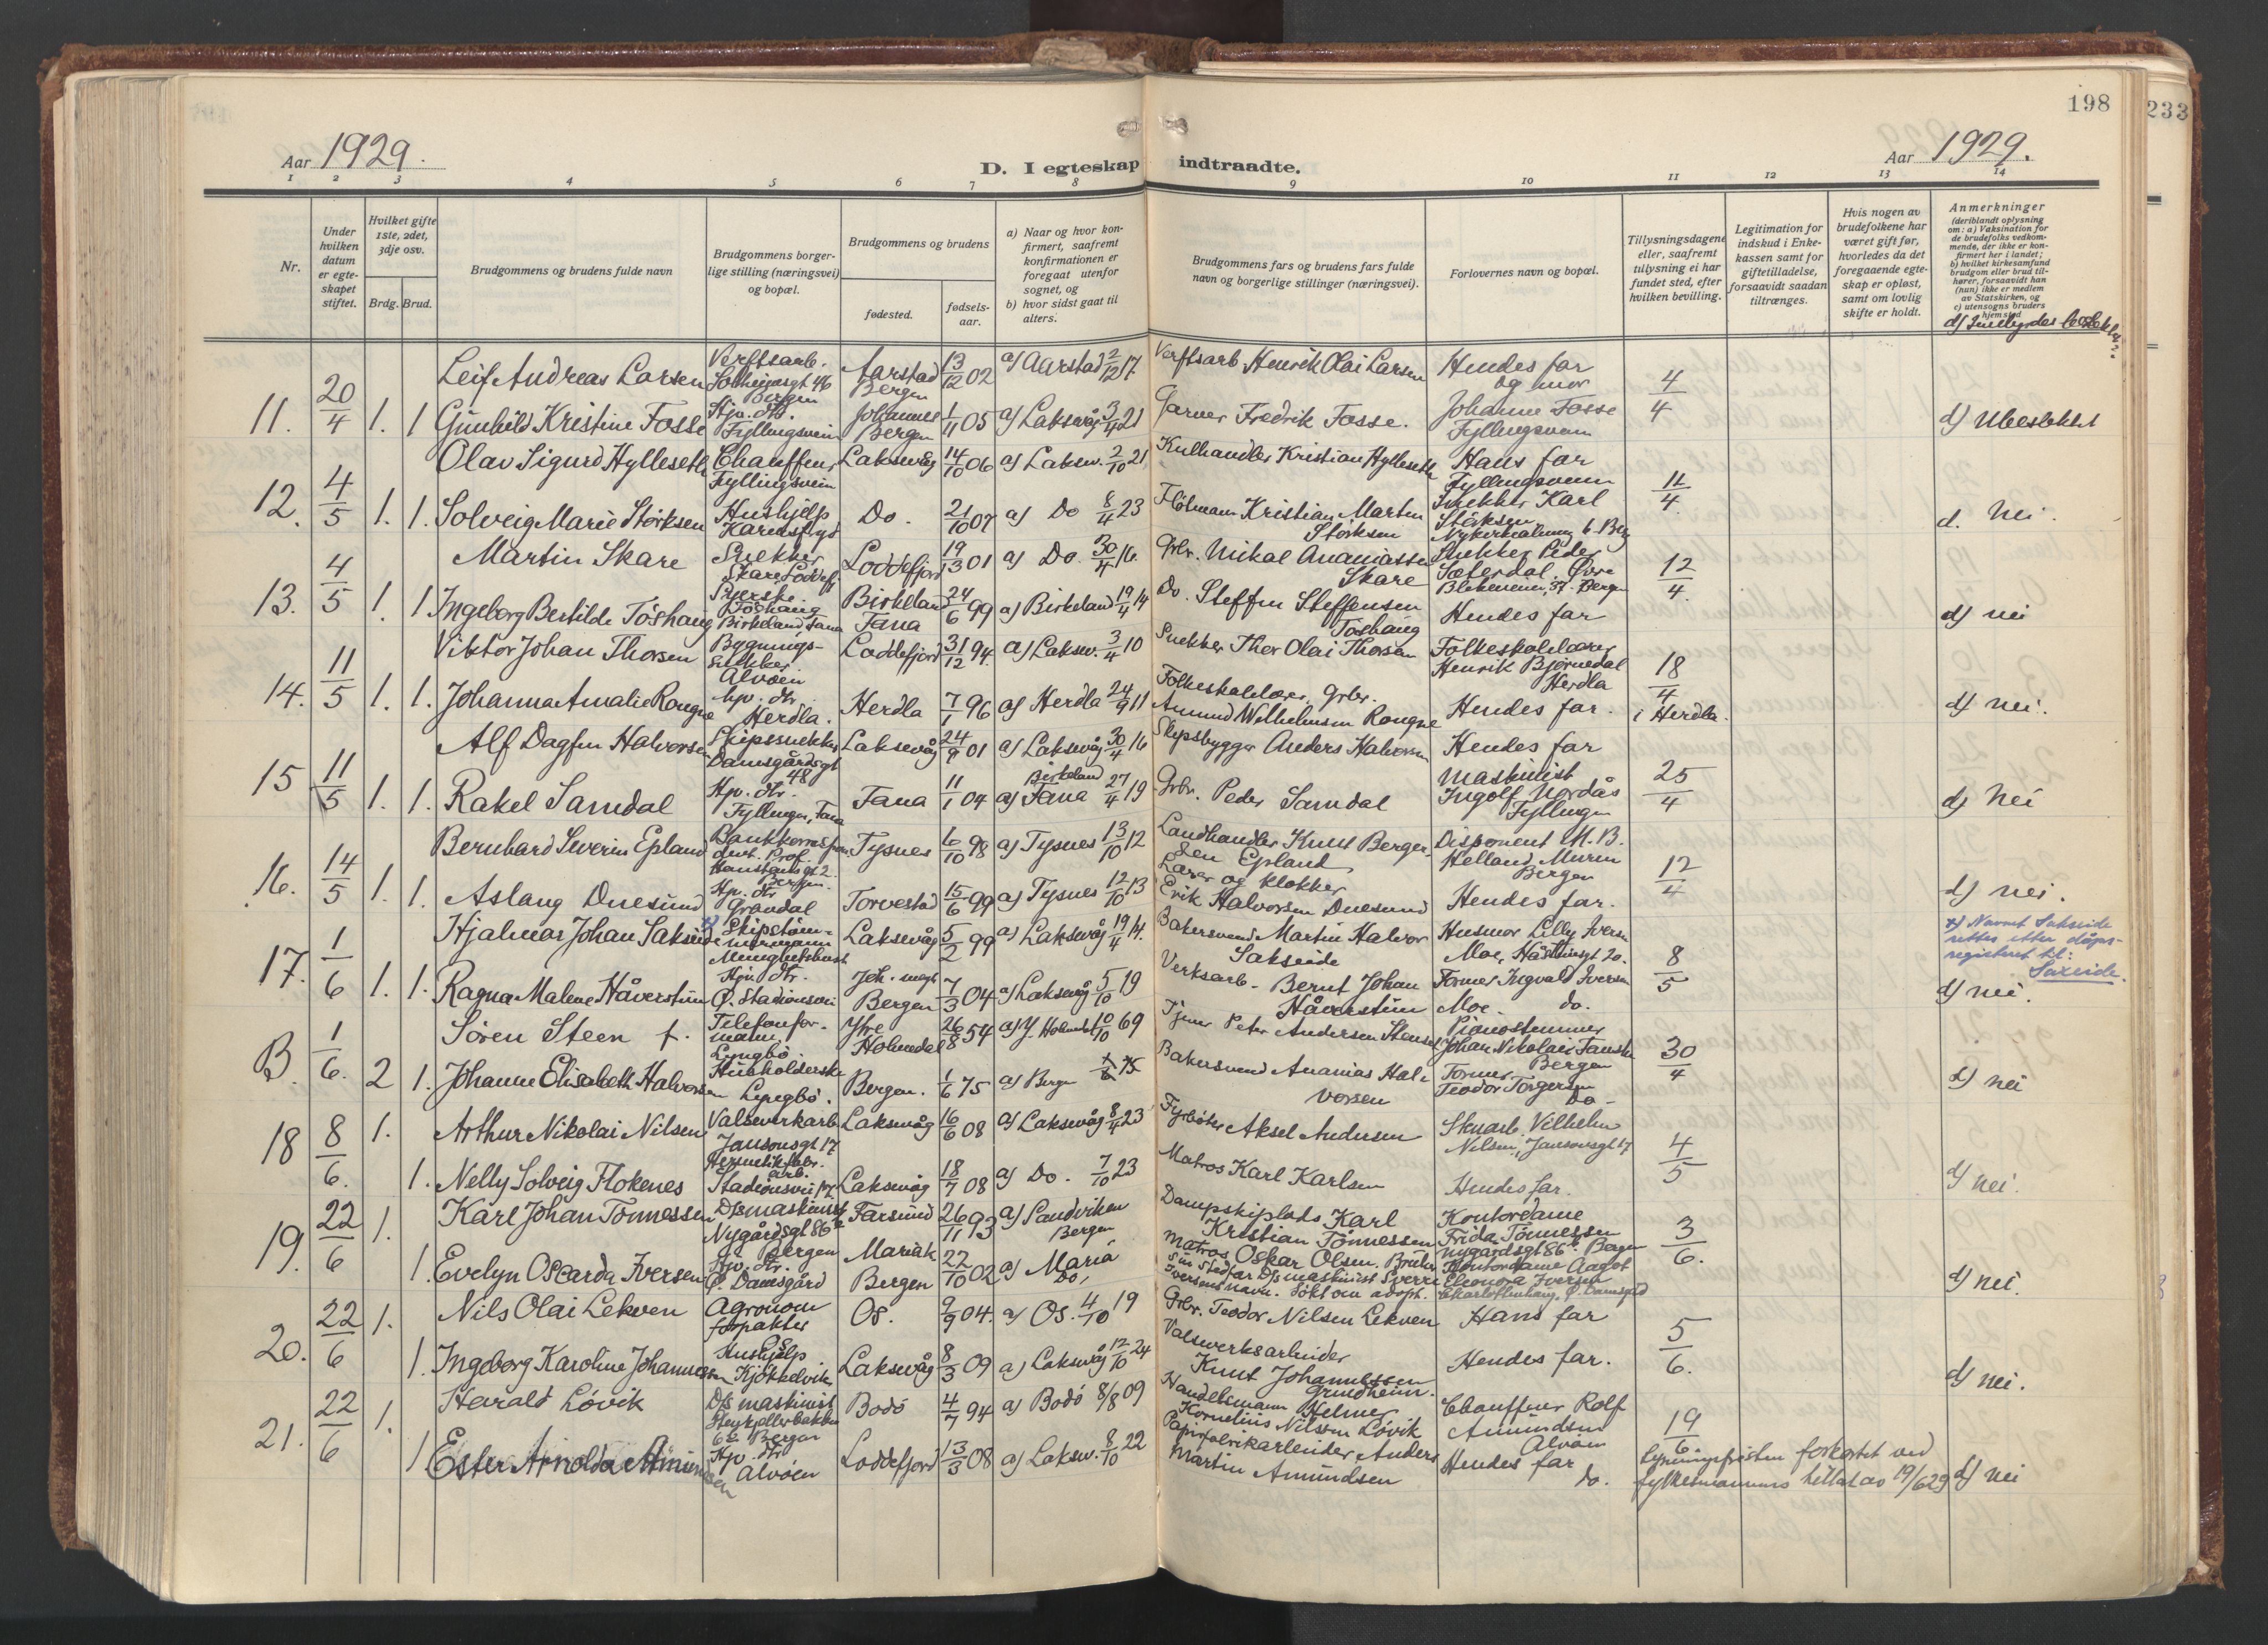 198
233
Aar 1929.
D. I egteskap indtraadte.
Aar 1929.
1 2 3 4 5 6 7 8 9 10 11 12 13 14
Nr.
Under hvilken datum er egteskapet stiftet.
Hvilket gifte 1ste, 2det, 3dje osv.
Brdg. Brud.
Brudgommens og brudens fulde navn
Brudgommens borgerlige stilling (næringsvei) og bopæl.
Brudgommens og brudens
fødested.
fødsels-aar.
a) Naar og hvor konfirmert, saafremt konfirmationen er foregaat utenfor sognet, og
b) hvor sidst gaat til alters.
Brudgommens fars og brudens fars fulde navn og borgerlige stillinger (næringsvei).
Forlovernes navn og bopæl.
Tillysningsdagene eller, saafremt tillysning ei har fundet sted, efter hvilken bevilling.
Legitimation for indskud i Enkekassen samt for giftetilladelse, forsaavidt saadan tiltrænges.
Hvis nogen av brudefolkene har været gift før, hvorledes da det foregaaende egteskap er opløst, samt om lovlig skifte er holdt.
Anmerkninger
(deriblandt oplysning om: a) Vaksination for de brudefolks vedkommende, der ikke er konfirmert her i landet;
b) hvilket kirkesamfund brudgom eller brud tilhører, forsaavidt han (hun) ikke er medlem av Statskirken, og
c) utensogns bruders hjemsted
11. 20/4 1. 1
Leif Andreas Larsen Verftsarb. Solheimsgt 46 Bergen Aarstad Bergen 13/12 02 a) Aarstad 2/12 17. Verftsarb. Henrik Olai Larsen Hendes far og mor 4/4
Gunhild Kristine Fosse Hjv. dtr. Fyllingsveien Johannes Bergen 1/11 05 a) Laksevåg 3/4 21 Garver Fredrik Fosse. Johanne Fosse Fyllingsveien d) Ubeslektet
12. 4/5 1. 1.
Olav Sigurd Hylleseth Chauffeur, Fyllingsveien Laksevåg 14/10 06 a) Laksev. 2/10 21 Kulhandler Kristian Hylleseth Hans far Fyllingsveien 11/4.
Solveig Marie Størksen Hushjelp Do. 21/10 07 a) Do 8/4 23 Kristian Martin Størksen Snekker Karl d. Nei.
13. 4/5 1. 1
Martin Skare Snekker Skare Loddefj. Loddefjord 19/13 01 a) Do. 30/4 16. Grbr. Mikal Ananiassen Skare Snekker Peder Sæterdal, Øvre Blekeveien, 37. Bergen 12/4.
Ingeborg Bertilde Töshaug Syerske. Töshaug Birkeland Fana Birkeland Fana 24/6 99 a) Birkeland 19/4 14 Do. Steffen Steffensen Töshaug Hendes far d) nei
14. 11/5 1. 1.
Viktor Johan Thorsen Bygnings-snekker. Alvøen Loddefjord 31/12 94. a) Laksev. 3/4 10 Snekker Thor Olai Thorsen Folkeskolelærer Henrik Bjørnedal Herdla 18/4 i Herdla.
Johanna Amalie Rongve hjv. dtr. Herdla. Herdla 7/1 96 a) Herdla 24/9 11 Folkeskolelærer, grbr. Amund Wilhelmsen Rongve Hendes far. d) nei.
15 11/5 1. 1.
Alf Dagfin Halvorsen Skipssnekker Damsgårdsgt 48 Laksevåg 24/9 01 a) Laksevåg 30/4 16 Skipsbygger Anders Halvorsen Hendes far 25/4
Rakel Samdal Hjv. dtr. Fyllingen, Fana Fana 11/1 04 a) Birkeland Fana 27/4 19 Grbr. Peder Samdal Maskinist Ingolf Nordås Fyllingen d) Nei
16. 14/5 1. 1.
Bernhard Severin Epland Tysnes 6/10 98 a) Tysnes 13/10 12 Landhandler Knut Bergersen Epland Disponent M. B. Helland, Muren Bergen 12/4
Aslaug Duesund Hjv. dtr Grøndal Torvestad 15/6 99 a) Tysnes 12/10 13 Lærer og klokker Erik Halvorsen Duesund Hendes far. d) nei.
17. 1/6 1. 1.
Hjalmar Johan Sakseide x) Skipstømmermann Laksevåg 5/2 99 a) Laksevåg 19/4 14. Bakersvend Martin Halvor Sakseide Husmor Lilly Iversen Moe, 8/5
x) Navnet Sakseide rettes etter dåps-registeret til: Saxeide.
Ragna Malene Håverstun Hjv. dtr. Ø. Stadionsvei Joh. Bergen 7/3 04 a) Laksevåg 5/10 19 Verksarb. Bernt Johan Håverstun Former Ingvald Iversen Moe. do. d) nei.
B. 1/6. 2 1.
Sören Steen f. Telefonformann. Lyngbö. Ytre Holmedal 26/8 54 a) Y. Holmedal 10/10 69 Tjener Peter Andersen Stensel Pianostemmer Johan Nikolai Fanske Bergen 30/4
Johanne Elisabeth Halvorsen Husholderske Lyngbö. Bergen. 1/6 75 a) Bergen Bakersvend Ananias Halvorsen Former Teodor Torgersen Do- d) nei
18 8/6. 1. 1.
Arthur Nikolai Nilsen Valseverkarb. Jansonsgt 17 Laksevåg 16/6 08 a) Laksevåg 8/4 23 Fyrbøter Aksel Andersen Vilhelm Nilsen, Jansonsgt 17 4/5
Nelly Solveig Flokenes Hermetikfabr. arb. Laksevåg 18/7 08 a) Do. 7/10 23 Matros Karl Karlsen Hendes far. d) nei.
19. 22/6 1. 1.
Karl Johan Tönnessen D/s maskinist Nygårdsgt 86 b Bergen Farsund 26/11 93 a) Sandviken Bergen Karl Kristian Tönnessen Kontordame Frida Tönnessen Nygårdsgt 86 b. Bergen 3/6.
Evelyn Oscarda Iversen Hjv. dtr. Ø. Damsgård Mariak Bergen 22/10 02 a) Maria Do, Matros Oskar Olsen. Bruker sin stedfar D/s maskinist Sverre Iversens navn. Søkt om adopt. Kontordame Aagot Eleonora Iversen d) nei.
20. 22/6 1. 1
Nils Olai Lekven Agronom forpakter Os Os. 9/9 04. a) Os. 4/10 19 Grbr. Teodor Nilsen Lekven Hans far 5/6.
Ingeborg Karoline Johannessen Hushjelp Kjökkelvik Laksevåg 8/3 09 a) Laksevåg 12/10 24 Valseverksarbeider Knut Johannessen Grindheim. Hendes far. d) nei.
21. 22/6 1. 1
Harald Lövik D/s maskinist Bergen Bodö 4/7 94 a) Bodö 8/8 09 Handelsmann Helmer Kornelius Nilsen Lövik Chauffeur Rolf Amundsen Alvöen 19/6.
Ester Arnolda Amundsen Hjv. dtr Alvöen Loddefjord 13/3 08 a) Laksev. 8/10 22 Papirfabrikarbeider Anders Martin Amundsen Hendes far do. Lysningsfristen forkortet ved fylkesmannens tillat. av 19/6 29 d) nei